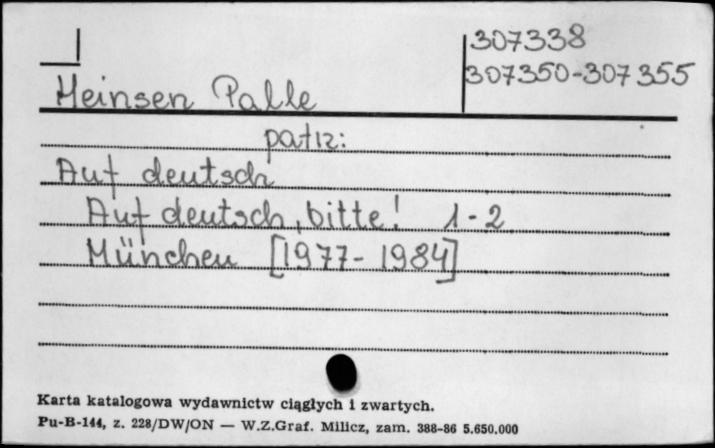 307338
307350-307355
Heinsen Palle
patrz:
Auf deutsch
Auf deutsch, bitte! 1-2
München [1977-1984]
Karta katalogowa wydawnictw ciągłych i zwartych.
Pu-B-144, z. 228/DW/ON — W.Z.Graf. Milicz, zam. 388-86 5.650.000